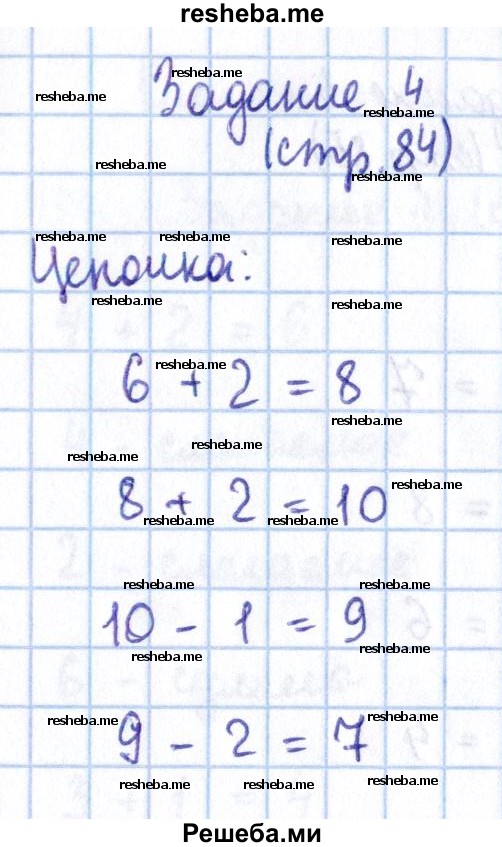 resheba.me
resheba.me
Задание 4
resheba.me
resheba.me
resheba.me
(стр. 84)
resheba.me
resheba.me resheba.me resheba.me
Цепочка:
resheba.me resheba.me
resheba.me
6 + 2 = 8
resheba.me
resheba.me
resheba.me
resheba.me
8 + 2 = 10
resheba.me resheba.me
resheba.me resheba.me
10 - 1 = 9
resheba.me
resheba.me
resheba.me resheba.me
9 - 2 = 7
resheba.me resheba.me resheba.me
Решеба.ми